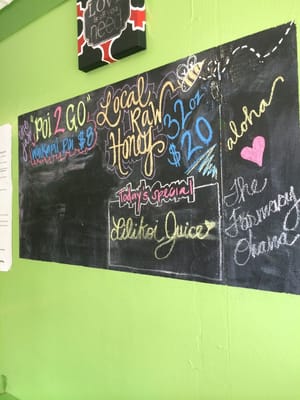 LOV
need
"Poi 2 GO"
Waiahole Poi $8
Local
Raw
Honey
32 oz
$20
Today's Special
Lilikoi Juice
aloha
The
Farmacy
Ohana